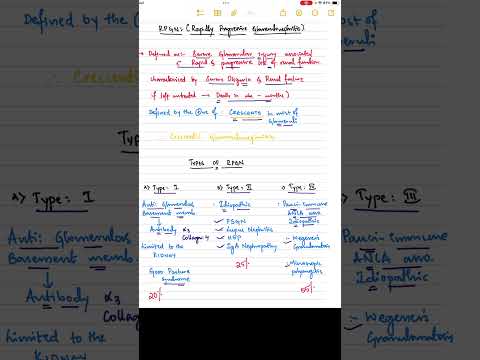 RPGN: (Rapidly Progressive Glomerulonephritis)
→ Defined as:- Severe Glomerular injury associated
c̄ Rapid & progressive of renal function
characterised by Severe Oliguria & Renal failure
if left untreated → Death in wks - months)
Defined by the ⊕nce of : CRESCENTS in most of
Glomeruli
Crescentic Glomerulonephritis
TYPES OF RPGN
a) Type: I
Anti: Glomerular
Basement memb
↓
Antibody α3
Collagen 4
Limited to the
KIDNEY
Good Pasture
Syndrome
20%
a) Type: II
Idiopathic
PSGN
Lupus Nephritis
HSP
IgA Nephropathy
25%
a) Type: III
Pauci-Immune
ANCA asso
Idiopathic
Wegener's
Granulomatosis
Microscopic
polyangitis
55%
Defined by the
Crescentic
Types
a) Type: I
Anti: Glomerular
Basement memb
↓
Antibody α3
Collagen
Limited to the
KIDNEY
most of
Glomeruli
Type: III
Pauci-Immune
ANCA asso
Idiopathic
Wegener's
Granulomatosis